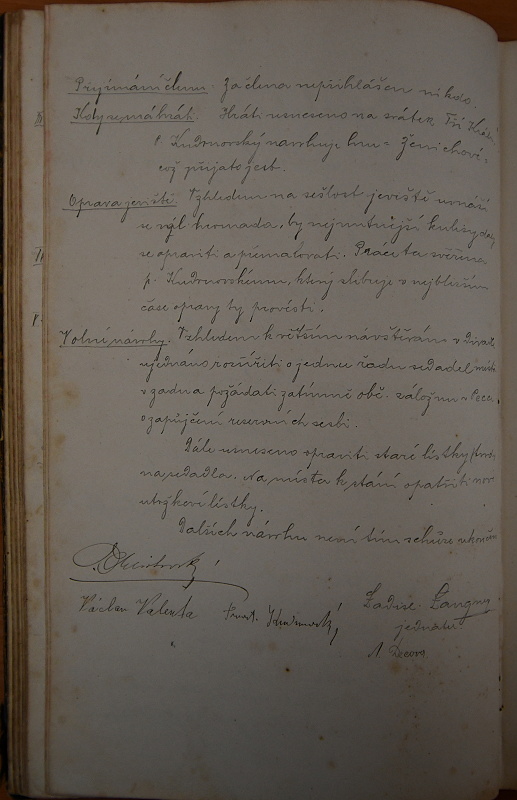 Přijímání členu. Za člena nepřihlášen nikdo.
Kdy se má hráti. Hráti usneseno na svátek Tří Králů
p. Kudrnovský navrhuje hru = Ženichové =
což přijato jest.
Oprava jeviště. Vzhledem na sešlost jeviště usnáší
se výb. hromada, by nejnutnější kulisy daly
se opraviti a přemalovati. Práce ta svěřena
p. Kudrnovskému, který slibuje v nejbližším
čase opravy ty provésti.
Volní návrhy. Vzhledem k větším návštěvám v divadle
ujednáno rozšířiti o jednu řadu sedadel
v zadu a požádati zatimně obč. záložnu v
o zapůjčení reservních
Dále usneseno opraviti staré lístky
na sedadla. Na místa k stání opatřiti nov
lístky.
Dalších návrhu není tím schůze ukončena
Václav Valenta Frant. Kudrnovský
jednatel